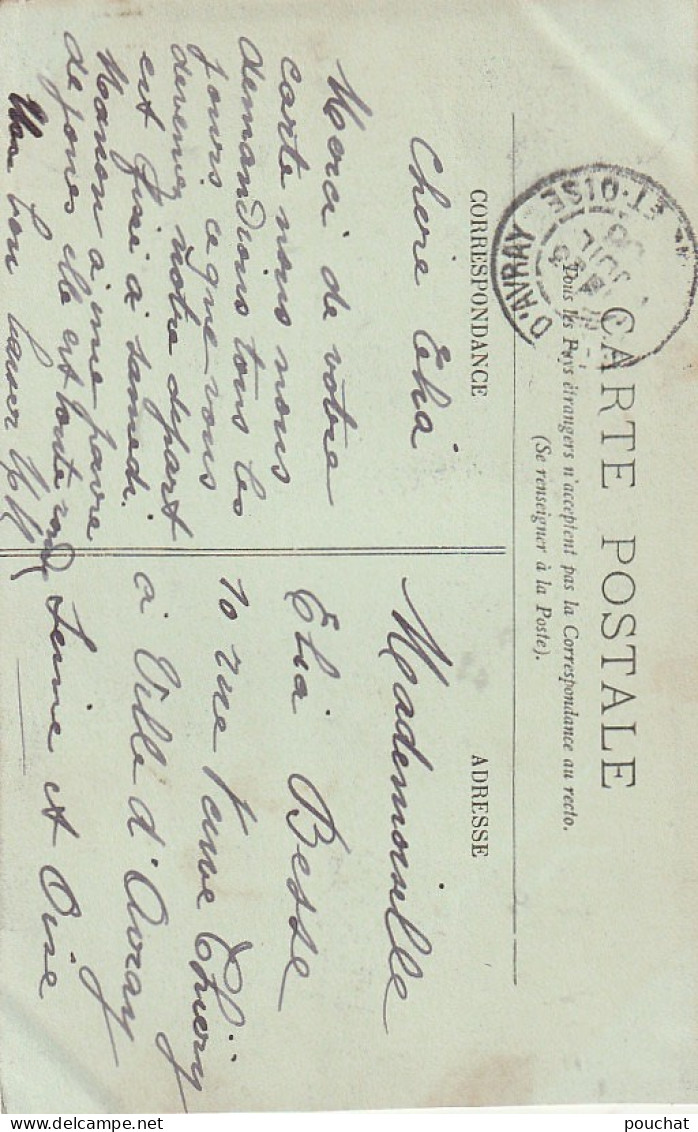 CARTE POSTALE
Tous les Pays étrangers n'acceptent pas la Correspondance au recto.
(Se renseigner à la Poste).
CORRESPONDANCE
Chere Ehia
Merci de votre
carte nous nous
demandions tous les
jours ce que vous
devenez notre départ
est fixé à samedi.
Manon a une pavre
de joues elle est toute
Un bon baiser
ADRESSE
Mademoiselle
Ehia Besse
10 rue Thierry
à Ville d'Avray
Seine et Oise
D'AVRAY
ET-OISE
pouchat